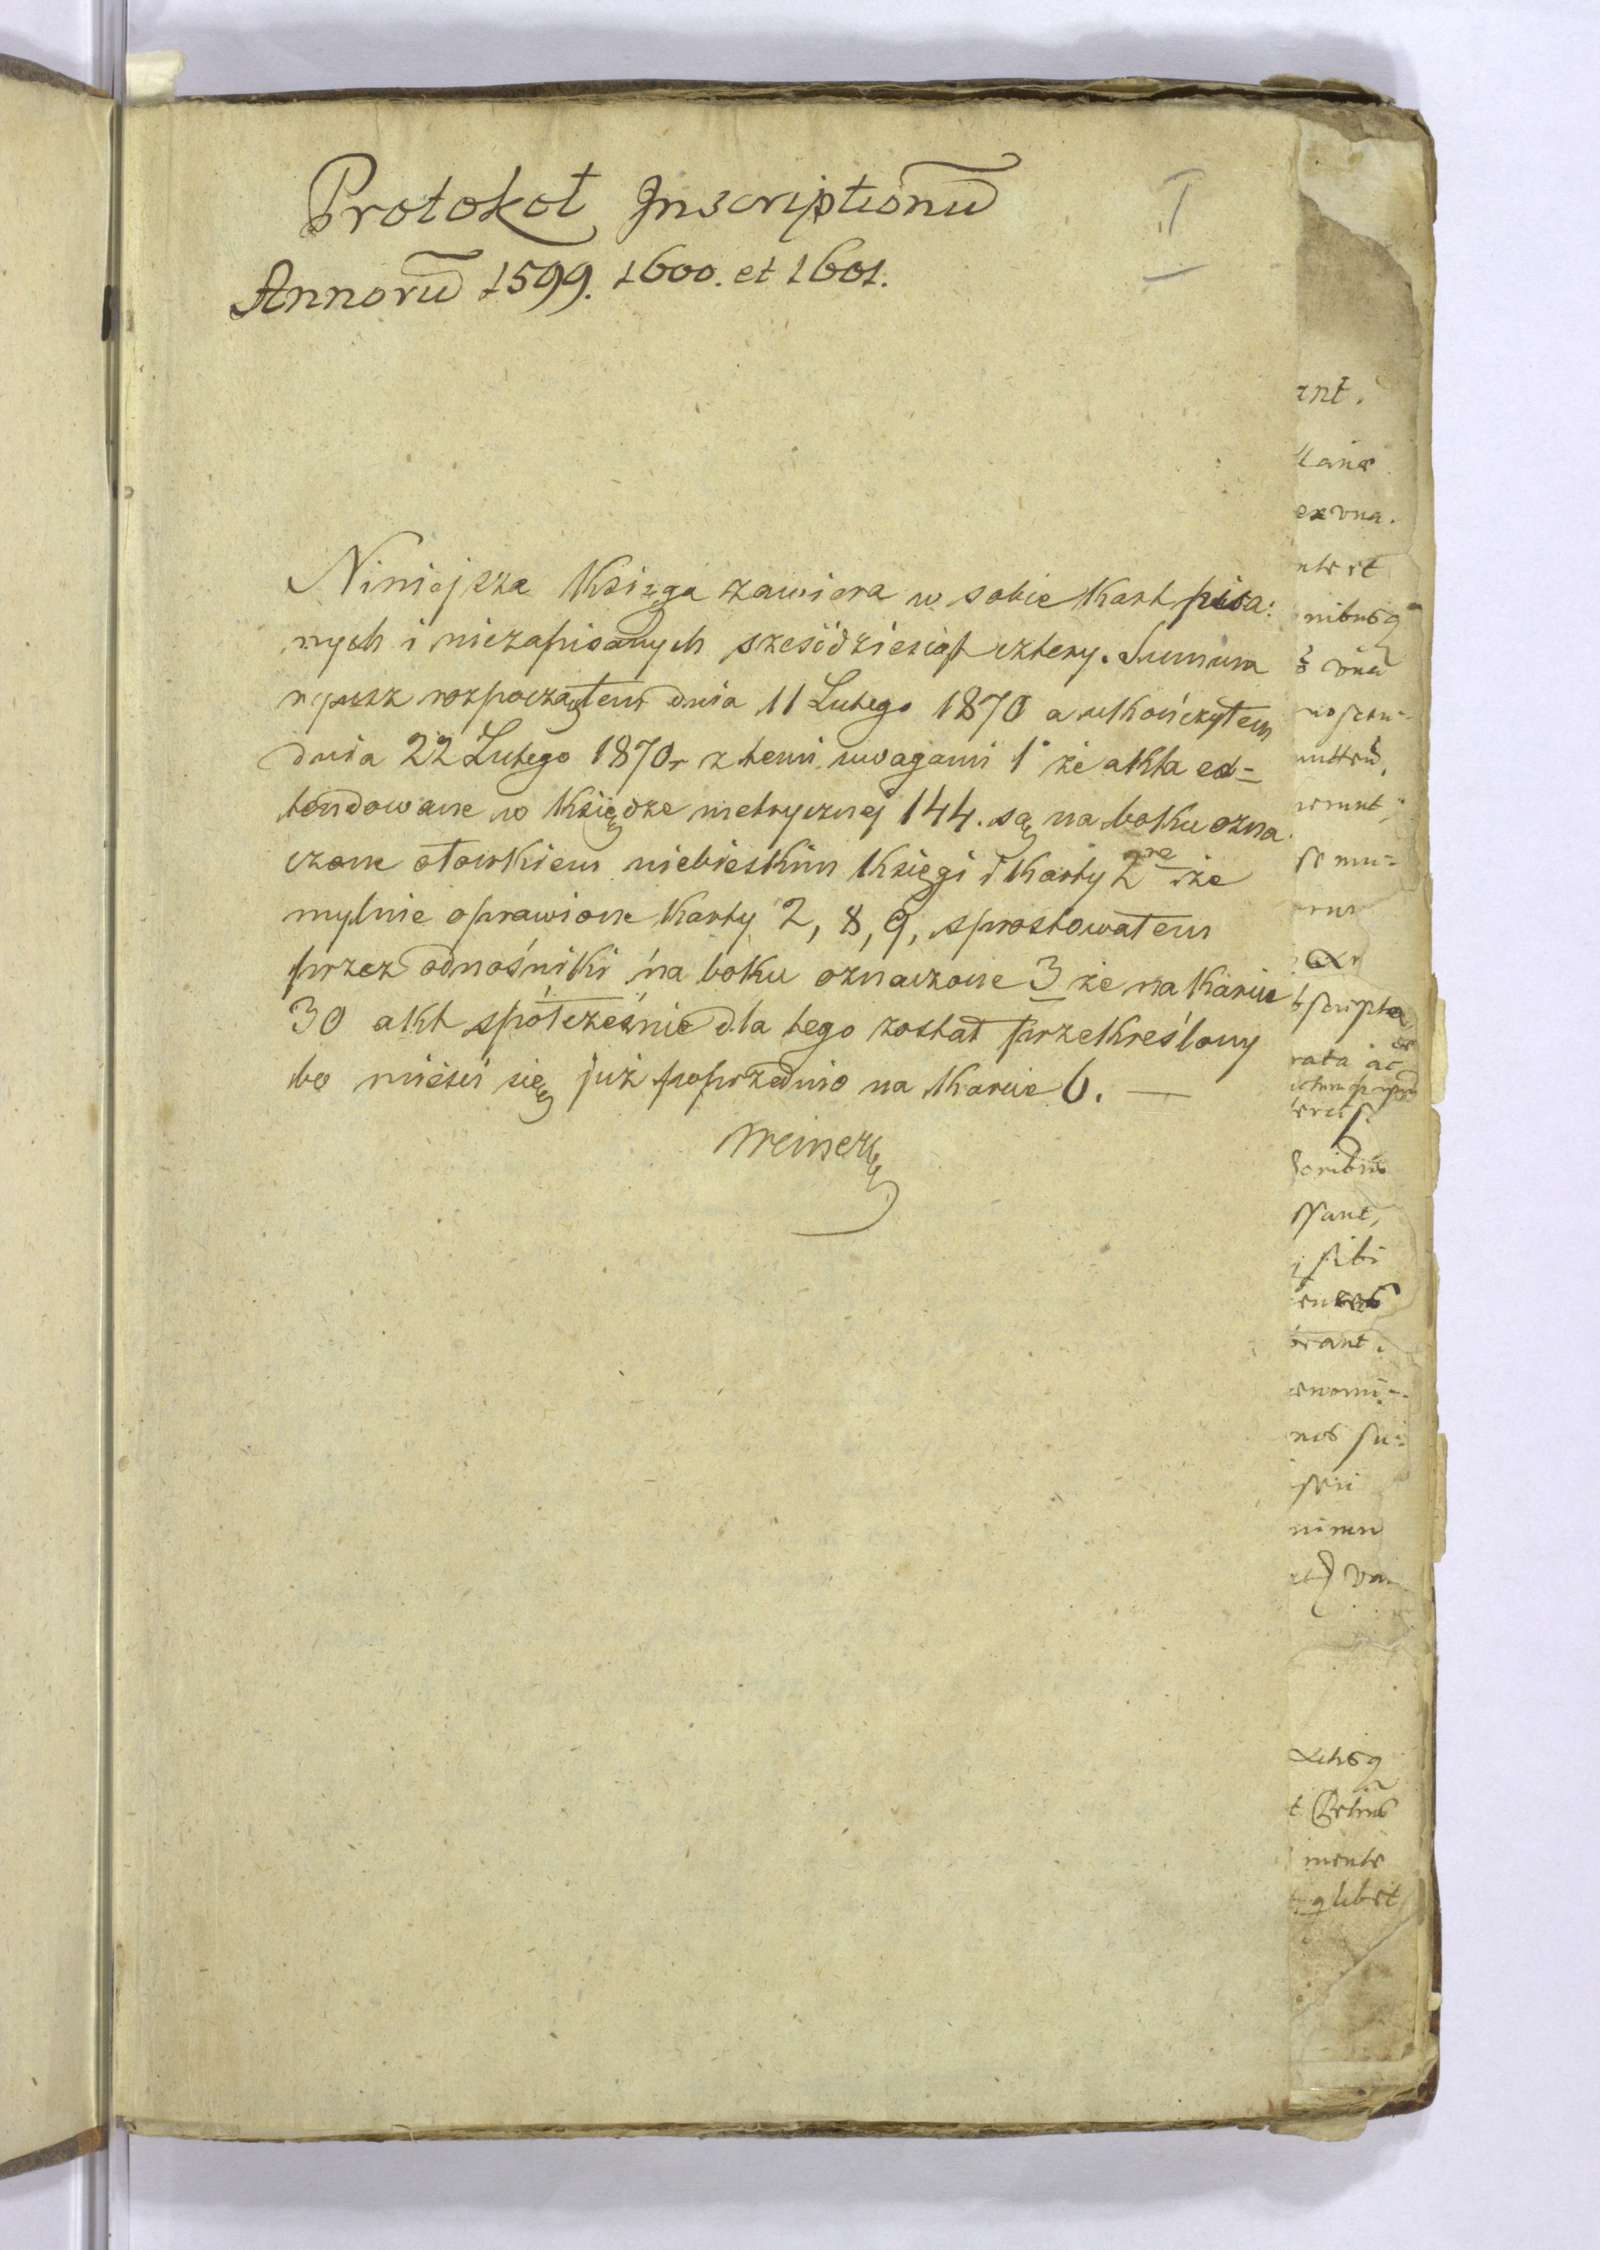 Protokoł Inscriptionũ
I
Annorũ 1599. 1600. et 1601.
Niniejsza Księga zawiera w sobie Kart pisa:
nych i niezapisanych sześćdziesiąt cztery. Sumum
rozpocząłem dnia 11 Lutego 1870 a ukończyłem
dnia 22 Lutego 1870 r z temi uwagami 1° że akta ex=
tendowane w Księdze metrycznej 144. są na boku ozna
czone ołowkiem niebieskim Księgi i Karty 2re że
mylnie oprawione Karty 2, 8, 9, sprostowałem
przez odnośniki na boku oznaczone 3 że na Karcie
30 akt społcześnie dla tego został przekreślony
bo mieści się już poprzednio na Karcie 6. —
ant.
ex vna.
nibusq
mitteñ
se mu=
bscripta
rata ac
ssant,
sibi
nos su=
t Petrus
mente
qlibet